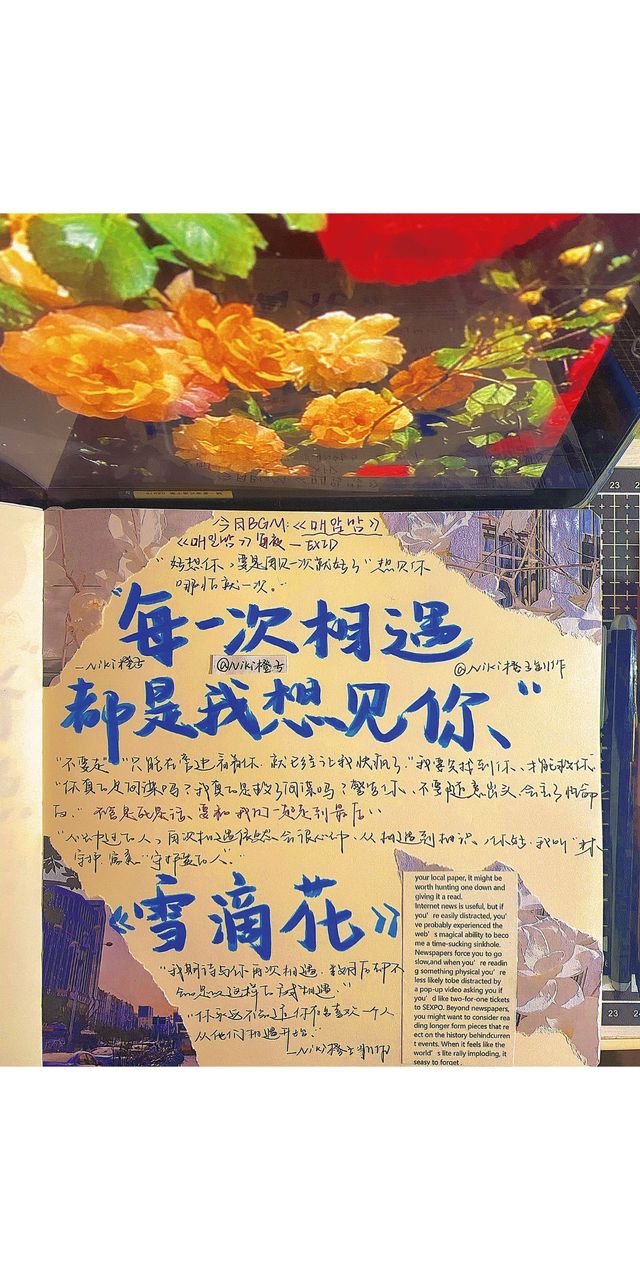 今日BGM:《매일밤》
《매일밤》每夜 — EXID
"好想你,要是用见一次就好了"想见你
哪怕就一次。"
"每一次相遇
—Niki橙子 @Niki橙子 @Niki橙子制作
都是我想见你"
"不要走" "只能在旁边看着你,就已经让我快疯了。" "我要先找到你,才能救你
"你真的是间谍吗?我真的是救了间谍吗?警告你,不要随意出去,会丢了性命
的。"不管是死是活,要和我们一起走到最后。
"心中的人,再次相遇依然会很心动,从相遇到相识。"你好,我叫"
守护"
《雪滴花》
"我期待与你再次相遇,数月后却不
知是以这样的方式相遇。"
"你永远不知道你有多喜欢一个人
从他们相遇开始。"
—Niki橙子制作
your local paper, it might be
worth hunting one down and
giving it a read.
Internet news is useful, but if
you're easily distracted, you'
ve probably experienced the
web's magical ability to beco
me a time-sucking sinkhole.
Newspapers force you to go
slow,and when you're readin
g something physical you're
less likely tobe distracted by
a pop-up video asking you if
you'd like two-for-one tickets
to SEXPO. Beyond newspapers,
you might want to consider rea
ding longer form pieces that re
ect on the history behindcurren
t events. When it feels like the
world's lite rally imploding, it
seasy to forget .